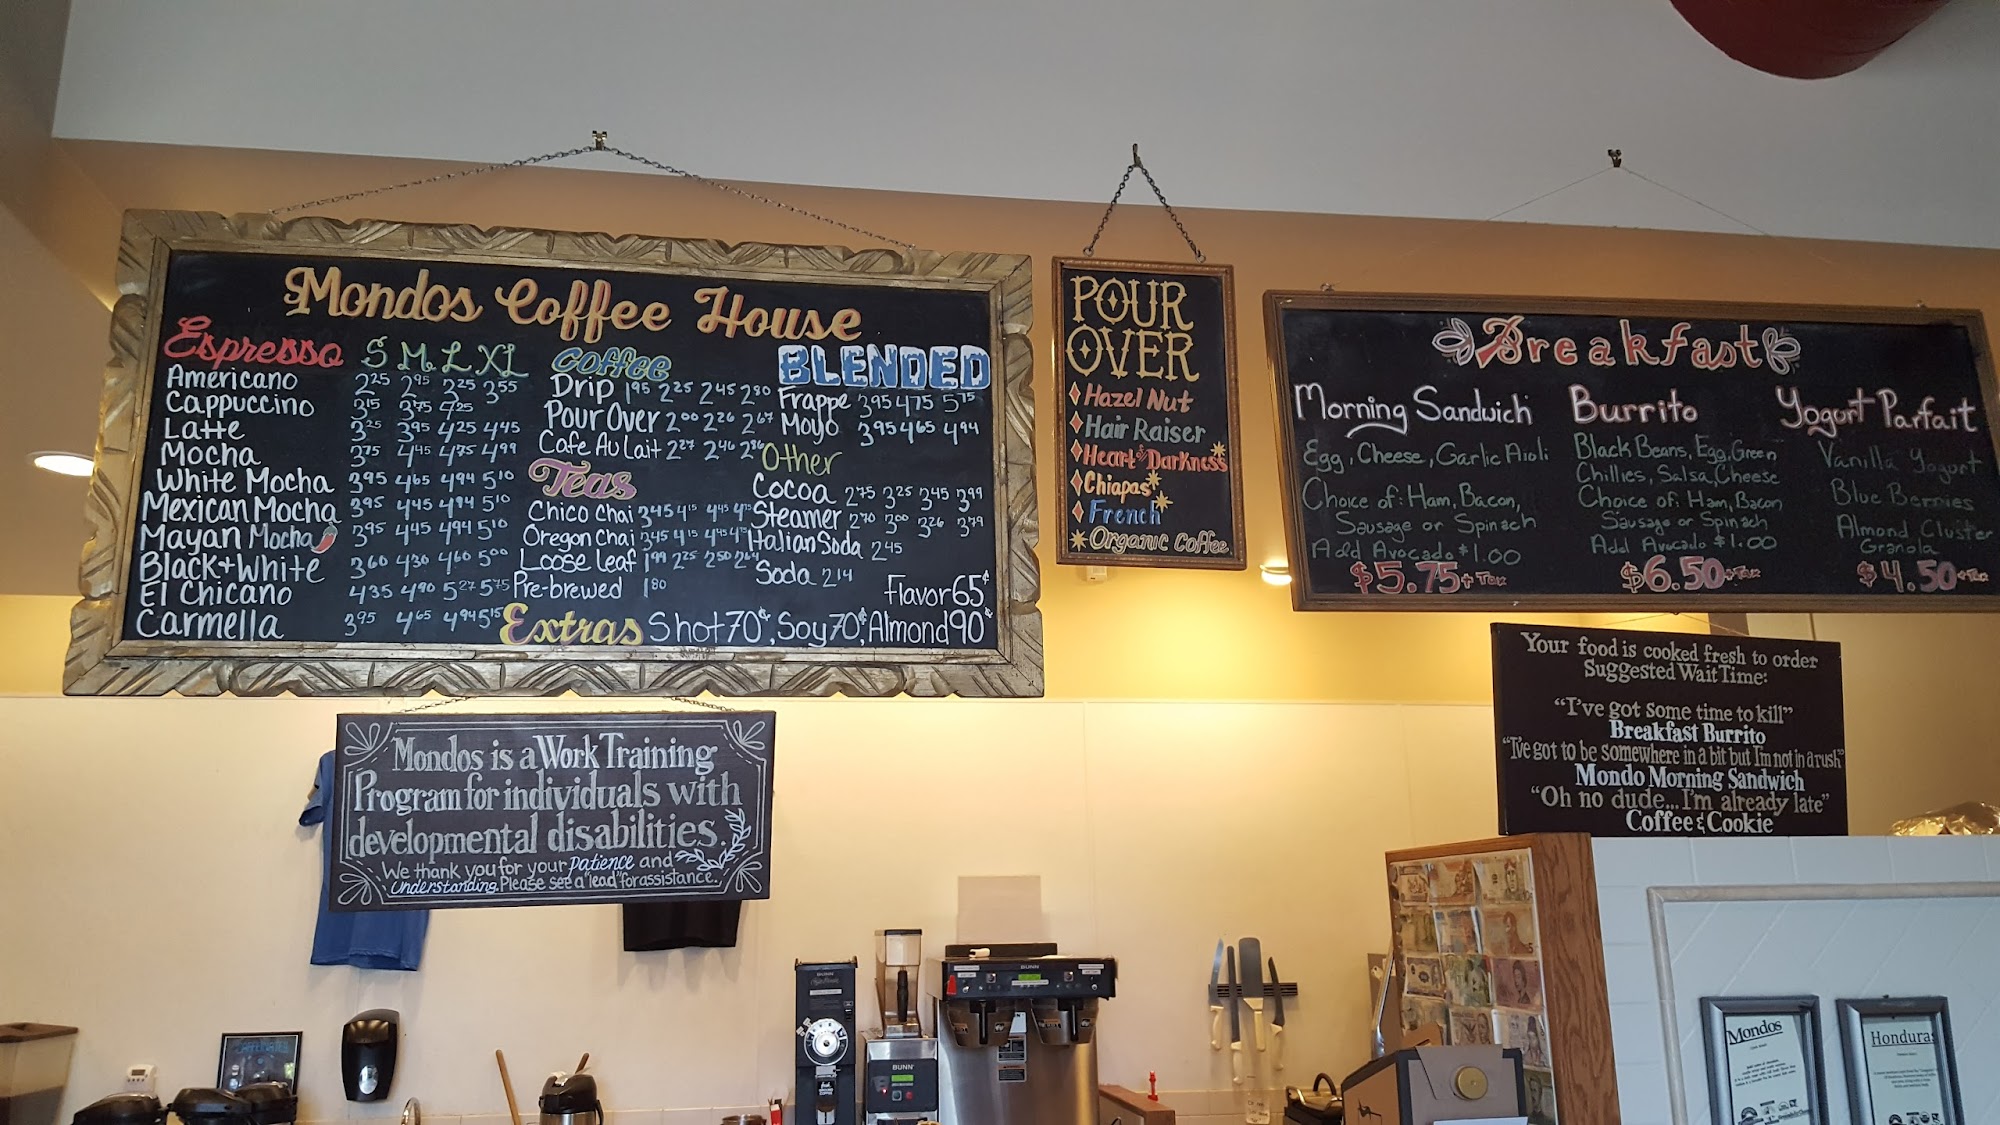 Mondos Coffee House
Espresso S M L XL
Americano 2.25 2.95 3.25 3.55
Cappuccino 3.15 3.75 4.25
Latte 3.25 3.95 4.25 4.45
Mocha 3.75 4.45 4.75 4.99
White Mocha 3.95 4.65 4.94 5.10
Mexican Mocha 3.95 4.45 4.94 5.10
Mayan Mocha 3.95 4.45 4.94 5.10
Black+White 3.60 4.30 4.60 5.00
El Chicano 4.35 4.90 5.27 5.75
Carmella 3.95 4.65 4.94 5.15
Coffee
Drip 1.95 2.25 2.45 2.80
Pour Over 2.00 2.26 2.67
Cafe Au Lait 2.27 2.46 2.86
Teas
Chico Chai 3.45 4.15 4.45 4.75
Oregon Chai 3.45 4.15 4.45 4.75
Loose Leaf 1.99 2.25 2.50 2.64
Pre-brewed 1.80
BLENDED
Frappe 3.95 4.75 5.15
Moyo 3.95 4.65 4.94
Other
Cocoa 2.75 3.25 3.45 3.99
Steamer 2.70 3.00 3.26 3.79
Italian Soda 2.45
Soda 2.14
Flavor 65¢
Extras Shot 70¢, Soy 70¢, Almond 90¢
POUR
OVER
Hazel Nut
Hair Raiser
Heart of Darkness
Chiapas
French
Organic Coffee
Breakfast
Morning Sandwich
Egg, Cheese, Garlic Aioli
Choice of: Ham, Bacon,
Sausage or Spinach
Add Avocado $1.00
$5.75 + Tax
Burrito
Black Beans, Egg, Green
Chillies, Salsa, Cheese
Choice of: Ham, Bacon
Sausage or Spinach
Add Avocado $1.00
$6.50 + Tax
Yogurt Parfait
Vanilla Yogurt
Blue Berries
Almond Cluster
Granola
$4.50 + Tax
Mondos is a Work Training
Program for individuals with
developmental disabilities.
We thank you for your patience and
Understanding. Please see a "lead" for assistance.
Your food is cooked fresh to order
Suggested Wait Time:
"I've got some time to kill"
Breakfast Burrito
"I've got to be somewhere in a bit but I'm not in a rush"
Mondo Morning Sandwich
"Oh no dude...I'm already late"
Coffee & Cookie
BUNN
BUNN
BUNN
Mondos
Honduras